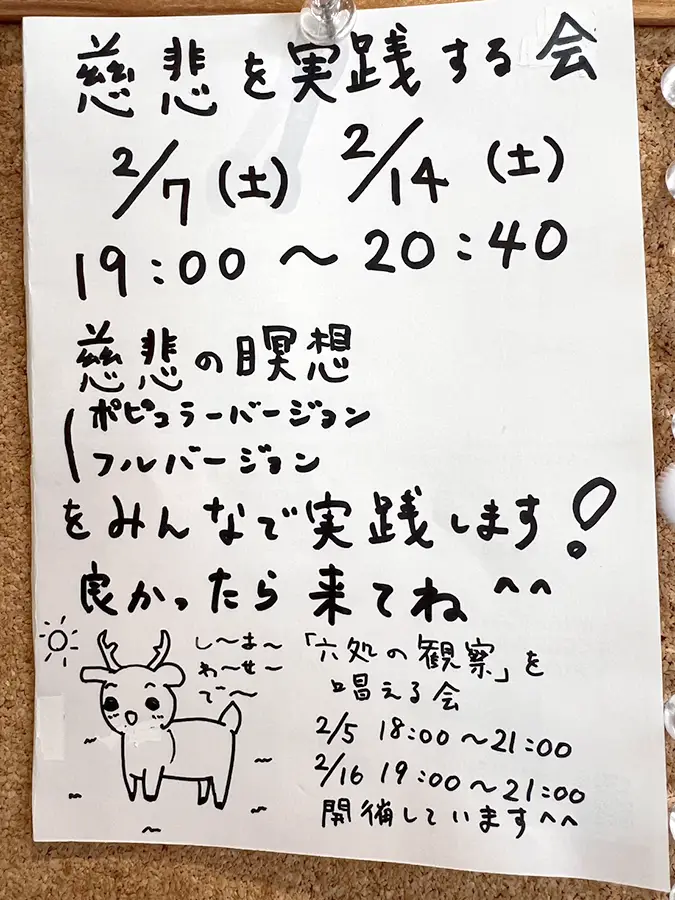 慈悲を実践する会
2/7(土) 2/14(土)
19:00～20:40
慈悲の瞑想
ポピュラーバージョン
フルバージョン
をみんなで実践します!
良かったら来てね^^
し〜あ〜
わ〜せ〜
で〜
「六処の観察」を
唱える会
2/5 18:00～21:00
2/16 19:00～21:00
開催しています^^